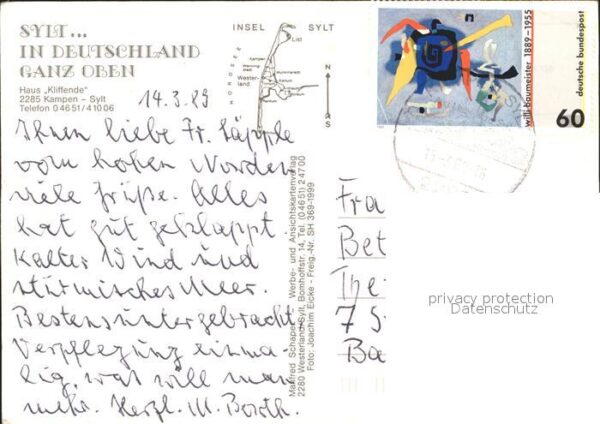 SYLT...
IN DEUTSCHLAND
GANZ OBEN
Haus „Kliffende"
2285 Kampen - Sylt
Telefon 0 46 51 / 4 10 06
INSEL SYLT
NORDSEE
List
Kampen
Westerland
N
S
14.3.89
Ihnen liebe Fr. Läpple
vom hohen Norden
viele Grüße. Alles
hat gut geklappt.
Kalter Wind und
stürmisches Meer.
Bestens untergebracht,
Verpflegung einma-
lig, was will man
mehr. Herzl. M. Borth.
Manfred Schaper, Werbe- und Ansichtskartenverlag
2280 Westerland/Sylt, Bomhoffstr. 14, Tel. (0 46 51) 2 47 00
Foto: Joachim Eicke - Freig.-Nr. SH 369-1999
willi baumeister 1889-1955
deutsche bundespost
60
Fra
Bet
The
75
Ba
privacy protection
Datenschutz